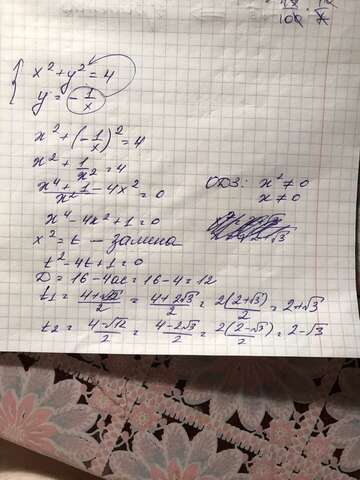 x² + y² = 4
y = -1/x
x² + (-1/x)² = 4
x² + 1/x² = 4
(x⁴ + 1 - 4x²)/x² = 0
ОДЗ: x² ≠ 0
x ≠ 0
x⁴ - 4x² + 1 = 0
x² = t - заміна
t² - 4t + 1 = 0
D = 16 - 4ac = 16 - 4 = 12
t₁ = (4+√12)/2 = (4+2√3)/2 = 2(2+√3)/2 = 2+√3
t₂ = (4-√12)/2 = (4-2√3)/2 = 2(2-√3)/2 = 2-√3